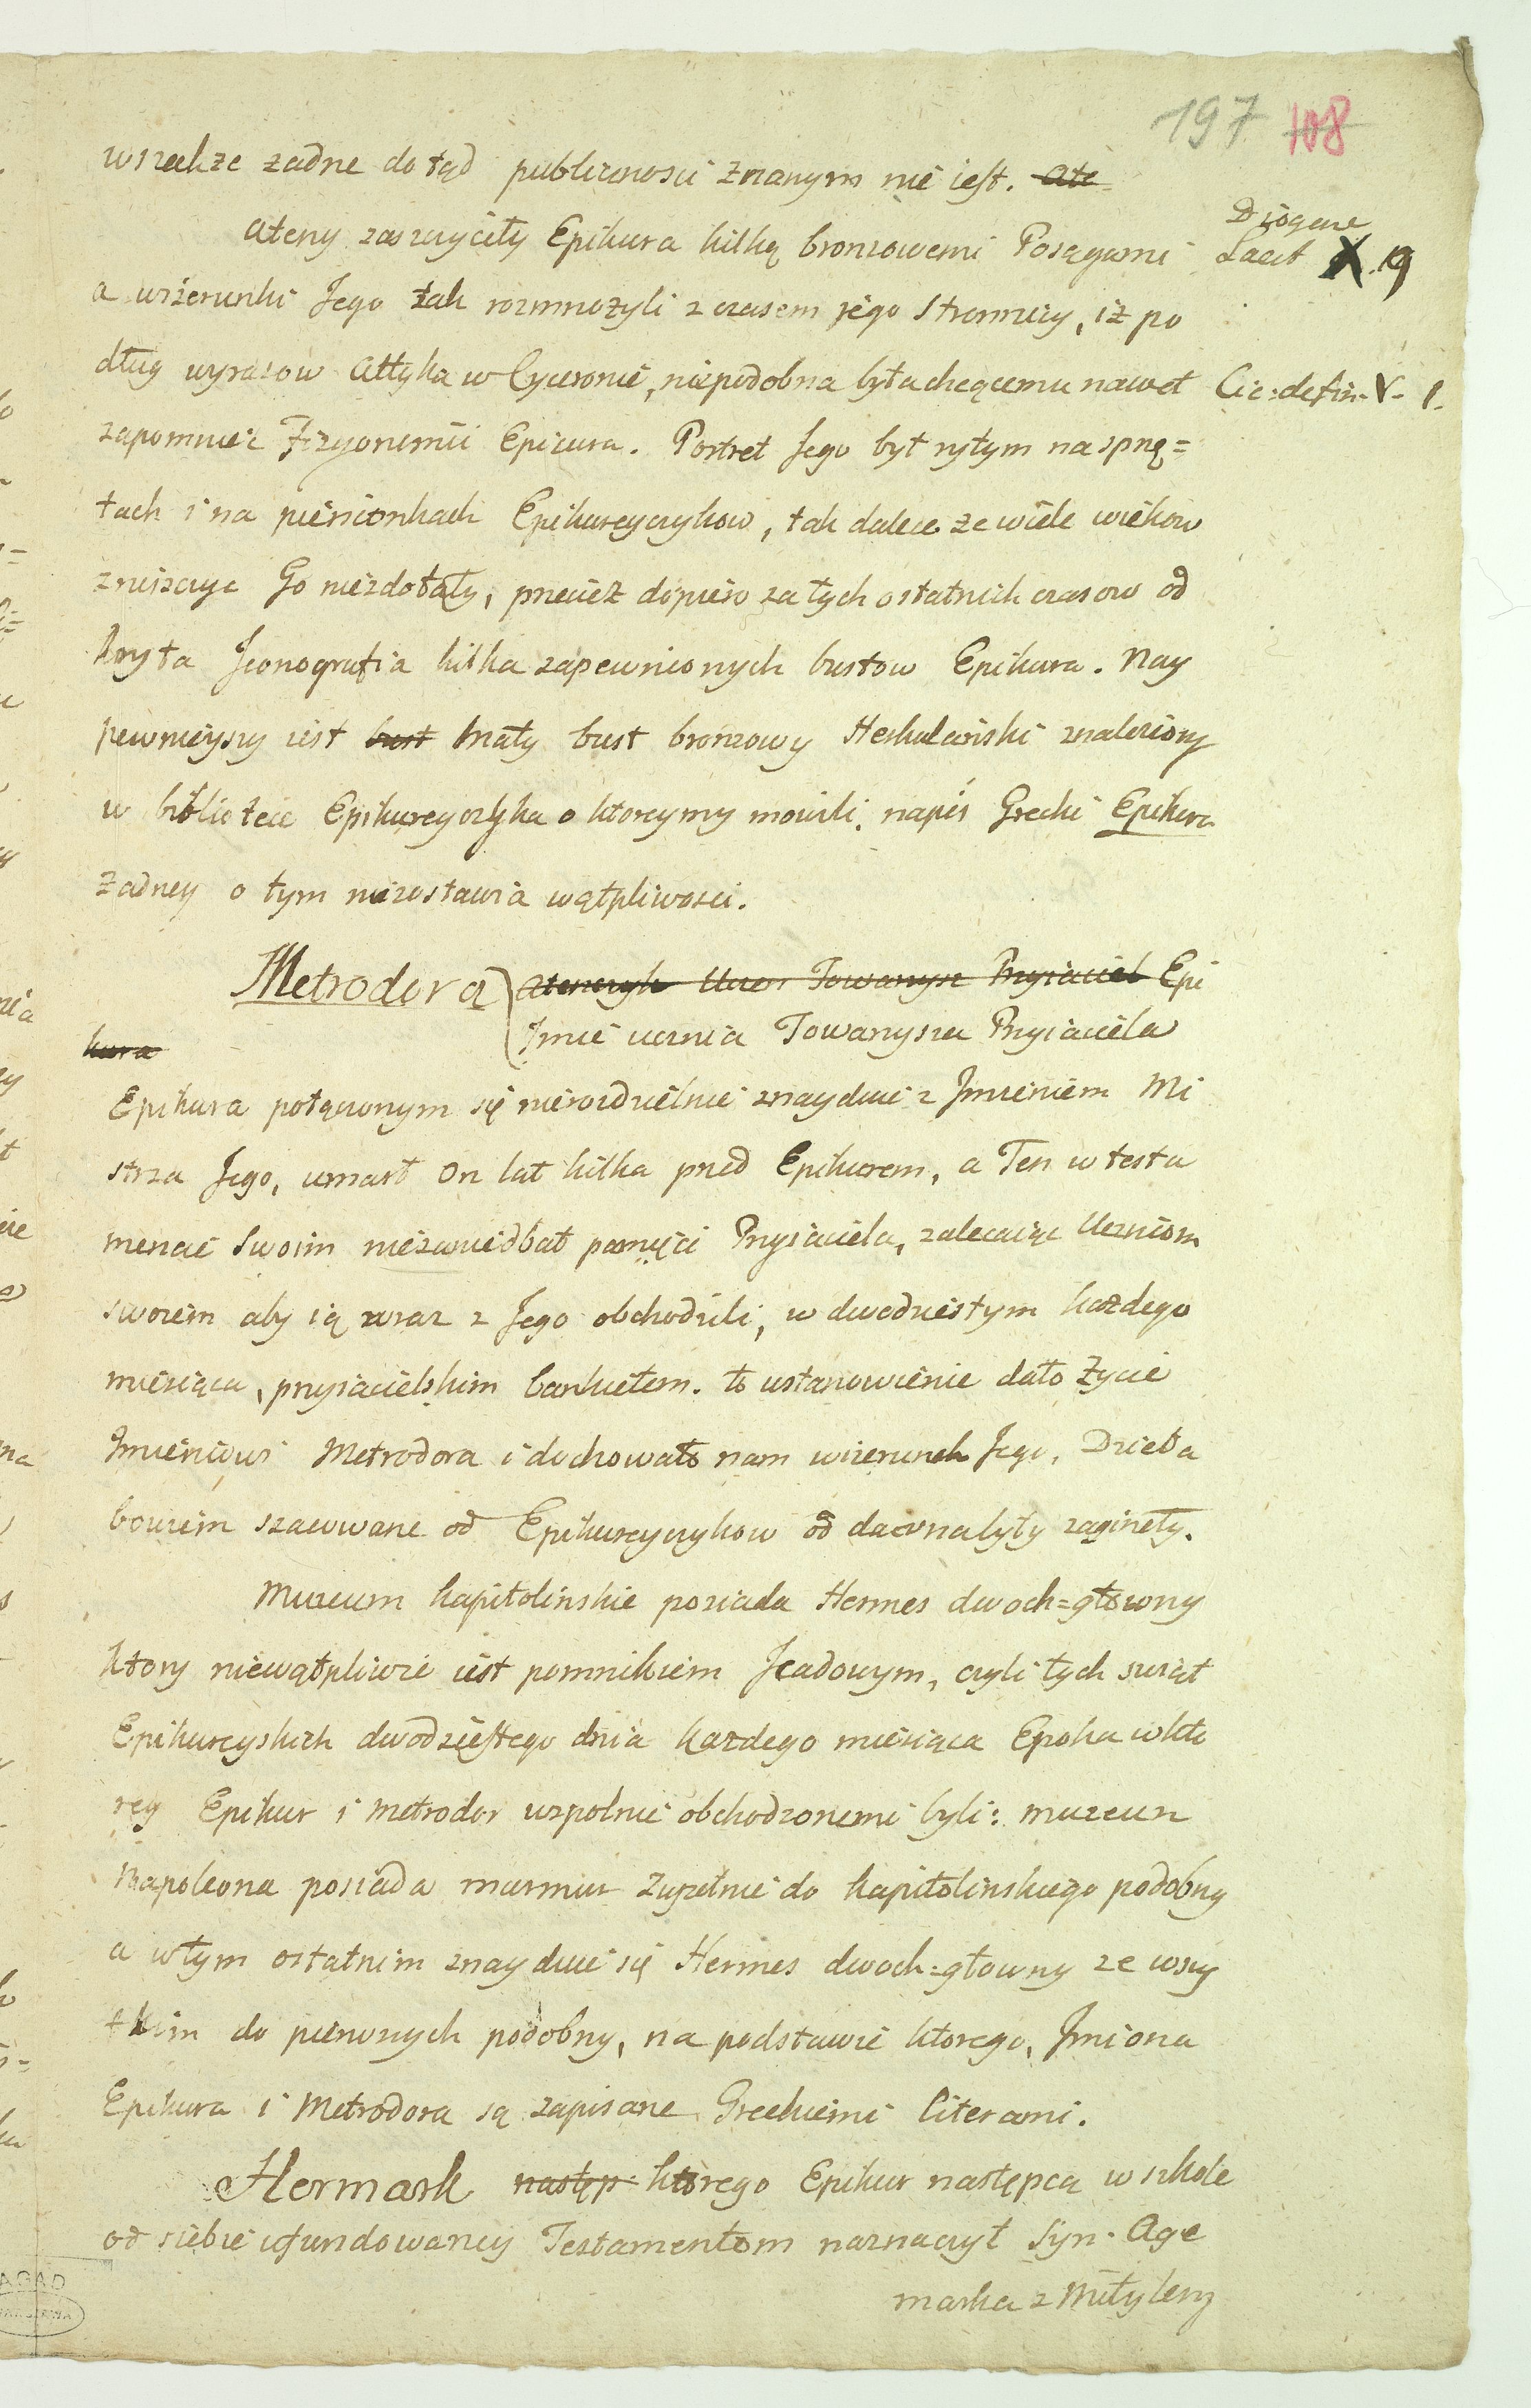 197 108
wszakże żadne dotąd publicznosci znanym nie iest. Ate=
Ateny zaszczyciły Epikura kilką bronzowemi Posągami
Diogene
Laert X. 9
a wizerunki Jego tak rozmnożyli z czasem jego Stronnicy, iż po
dług wyrazow Attyka w Cyceronie, niepodobna była chcącemu nawet
Cic: de fin. V. 1.
zapomnieć Fizyonomii Epicura. Portret Jego był rytym na sprzę=
tach i na pierscionkach Epikureyczykow, tak dalece ze wiele wiekow
zniszczyc Go niezdołały, przecież dopiero za tych ostatnich czasow od
kryła Jconografia kilka zapewnionych bustow Epikura. Nay
pewnieyszy iest bust mały bust bronzowy Herkulański znaleziony
w bibliotece Epikureyczyka o ktorey my mowili, napis Grecki Epikura
żadney o tym niezostawia wątpliwosci.
Metrodora Atenczyk Uczen Towarzysz Przyiaciel Epi
Jmie ucznia Towarzysza Przyiaciela
kura
Epikura połączonym się nierozdzielnie znayduie z Jmieniem Mi
strza Jego, umarł on lat kilka przed Epikurem, a Ten w testa
mencie Swoim niezaniedbał pamięci Przyiaciela, zalecaiąc Uczniom
swoiem aby ią wraz z Jego obchodzili, w dwudziestym każdego
miesiąca, przyiacielskim bankietem. to ustanowienie dało życie
Jmieniowi Metrodora i dochowało nam wizerunek Jego, Dzieła
bowiem szacowane od Epikureyczykow od dawna były zaginęły.
Muzeum Kapitolinskie posiada Hermes dwoch=głowny
ktory niewątpliwie iest pomnikiem Jcadowym, czyli tych swiąt
Epikureyskich dwodziestego dnia każdego miesiąca Epoka w kto
rey Epikur i Metrodor wspolnie obchodzonemi byli: Muzeum
Napoleona posiada marmur zupełnie do Kapitolinskiego podobny
a w tym ostatnim znayduie się Hermes dwoch=głowny ze wszy
tkim do pierwszych podobny, na podstawie ktorego, Jmiona
Epikura i Metrodora są zapisane Greckiemi literami.
Hermark następ ktorego Epikur następcą w szkole
od siebie ufundowaney Testamentem naznaczył Syn Age
marka z Mityleny
AGAD
WARSZAWA